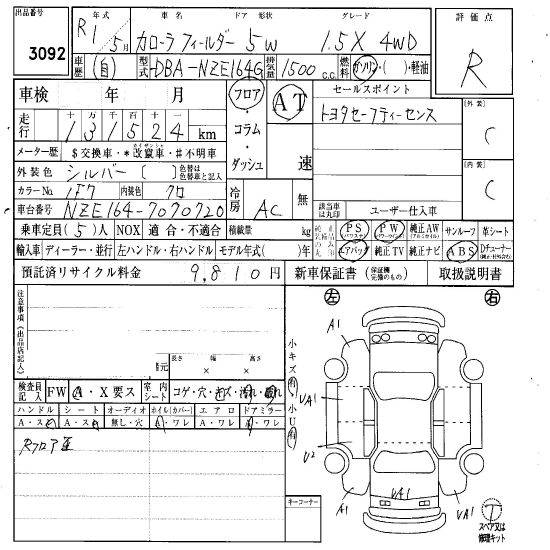 出品番号 年式 車名 ドア 形状 グレード 評価点
3092 R1 5月 カローラ フィールダー 5W 1.5X 4WD R
車歴 (自) 型式 DBA-NZE164G 排気量 1500 c.c. 燃料 ガソリン・( )・軽油
車検 年 月 フロア・コラム・ダッシュ AT 速 セールスポイント 外装 C
走行 十万千百十一
131524 km トヨタセーフティーセンス
メーター歴 $交換車・*改竄車・#不明車 内装 C
外装色 シルバー ( ) 色替は色替車と記入
カラーNo. 1F7 内装色 クロ 冷房 AC 無 該当車は丸印 ユーザー仕入車
車台番号 NZE164-7070720
乗車定員(5)人 NOX 適合・不適合 積載量 kg PS PW 純正AW サンルーフ 革シート
輸入車 ディーラー・並行 左ハンドル・右ハンドル モデル年式( )年 エアバッグ 純正TV 純正ナビ ABS Dチューナー
預託済リサイクル料金 9,810円 新車保証書 (保証継 完備のもの) 取扱説明書
注意事項 (出品店記入)
左 右
寸元 長さ × 幅 × 高さ
小キズ有・小U有
検査員記入 FW A・X要ス 室内シート コゲ・穴・キズ・汚れ・破れ
ハンドル シート オーディオ ホイル(カバー) エアロ ドアミラー
A・ス A・ス 無し・穴 A・ワレ A・ワレ A・ワレ
Rフロア歪
A1
A1
UA1
U2
A1
UA1
UA1
キーコーナー
T
スペア又は修理キット